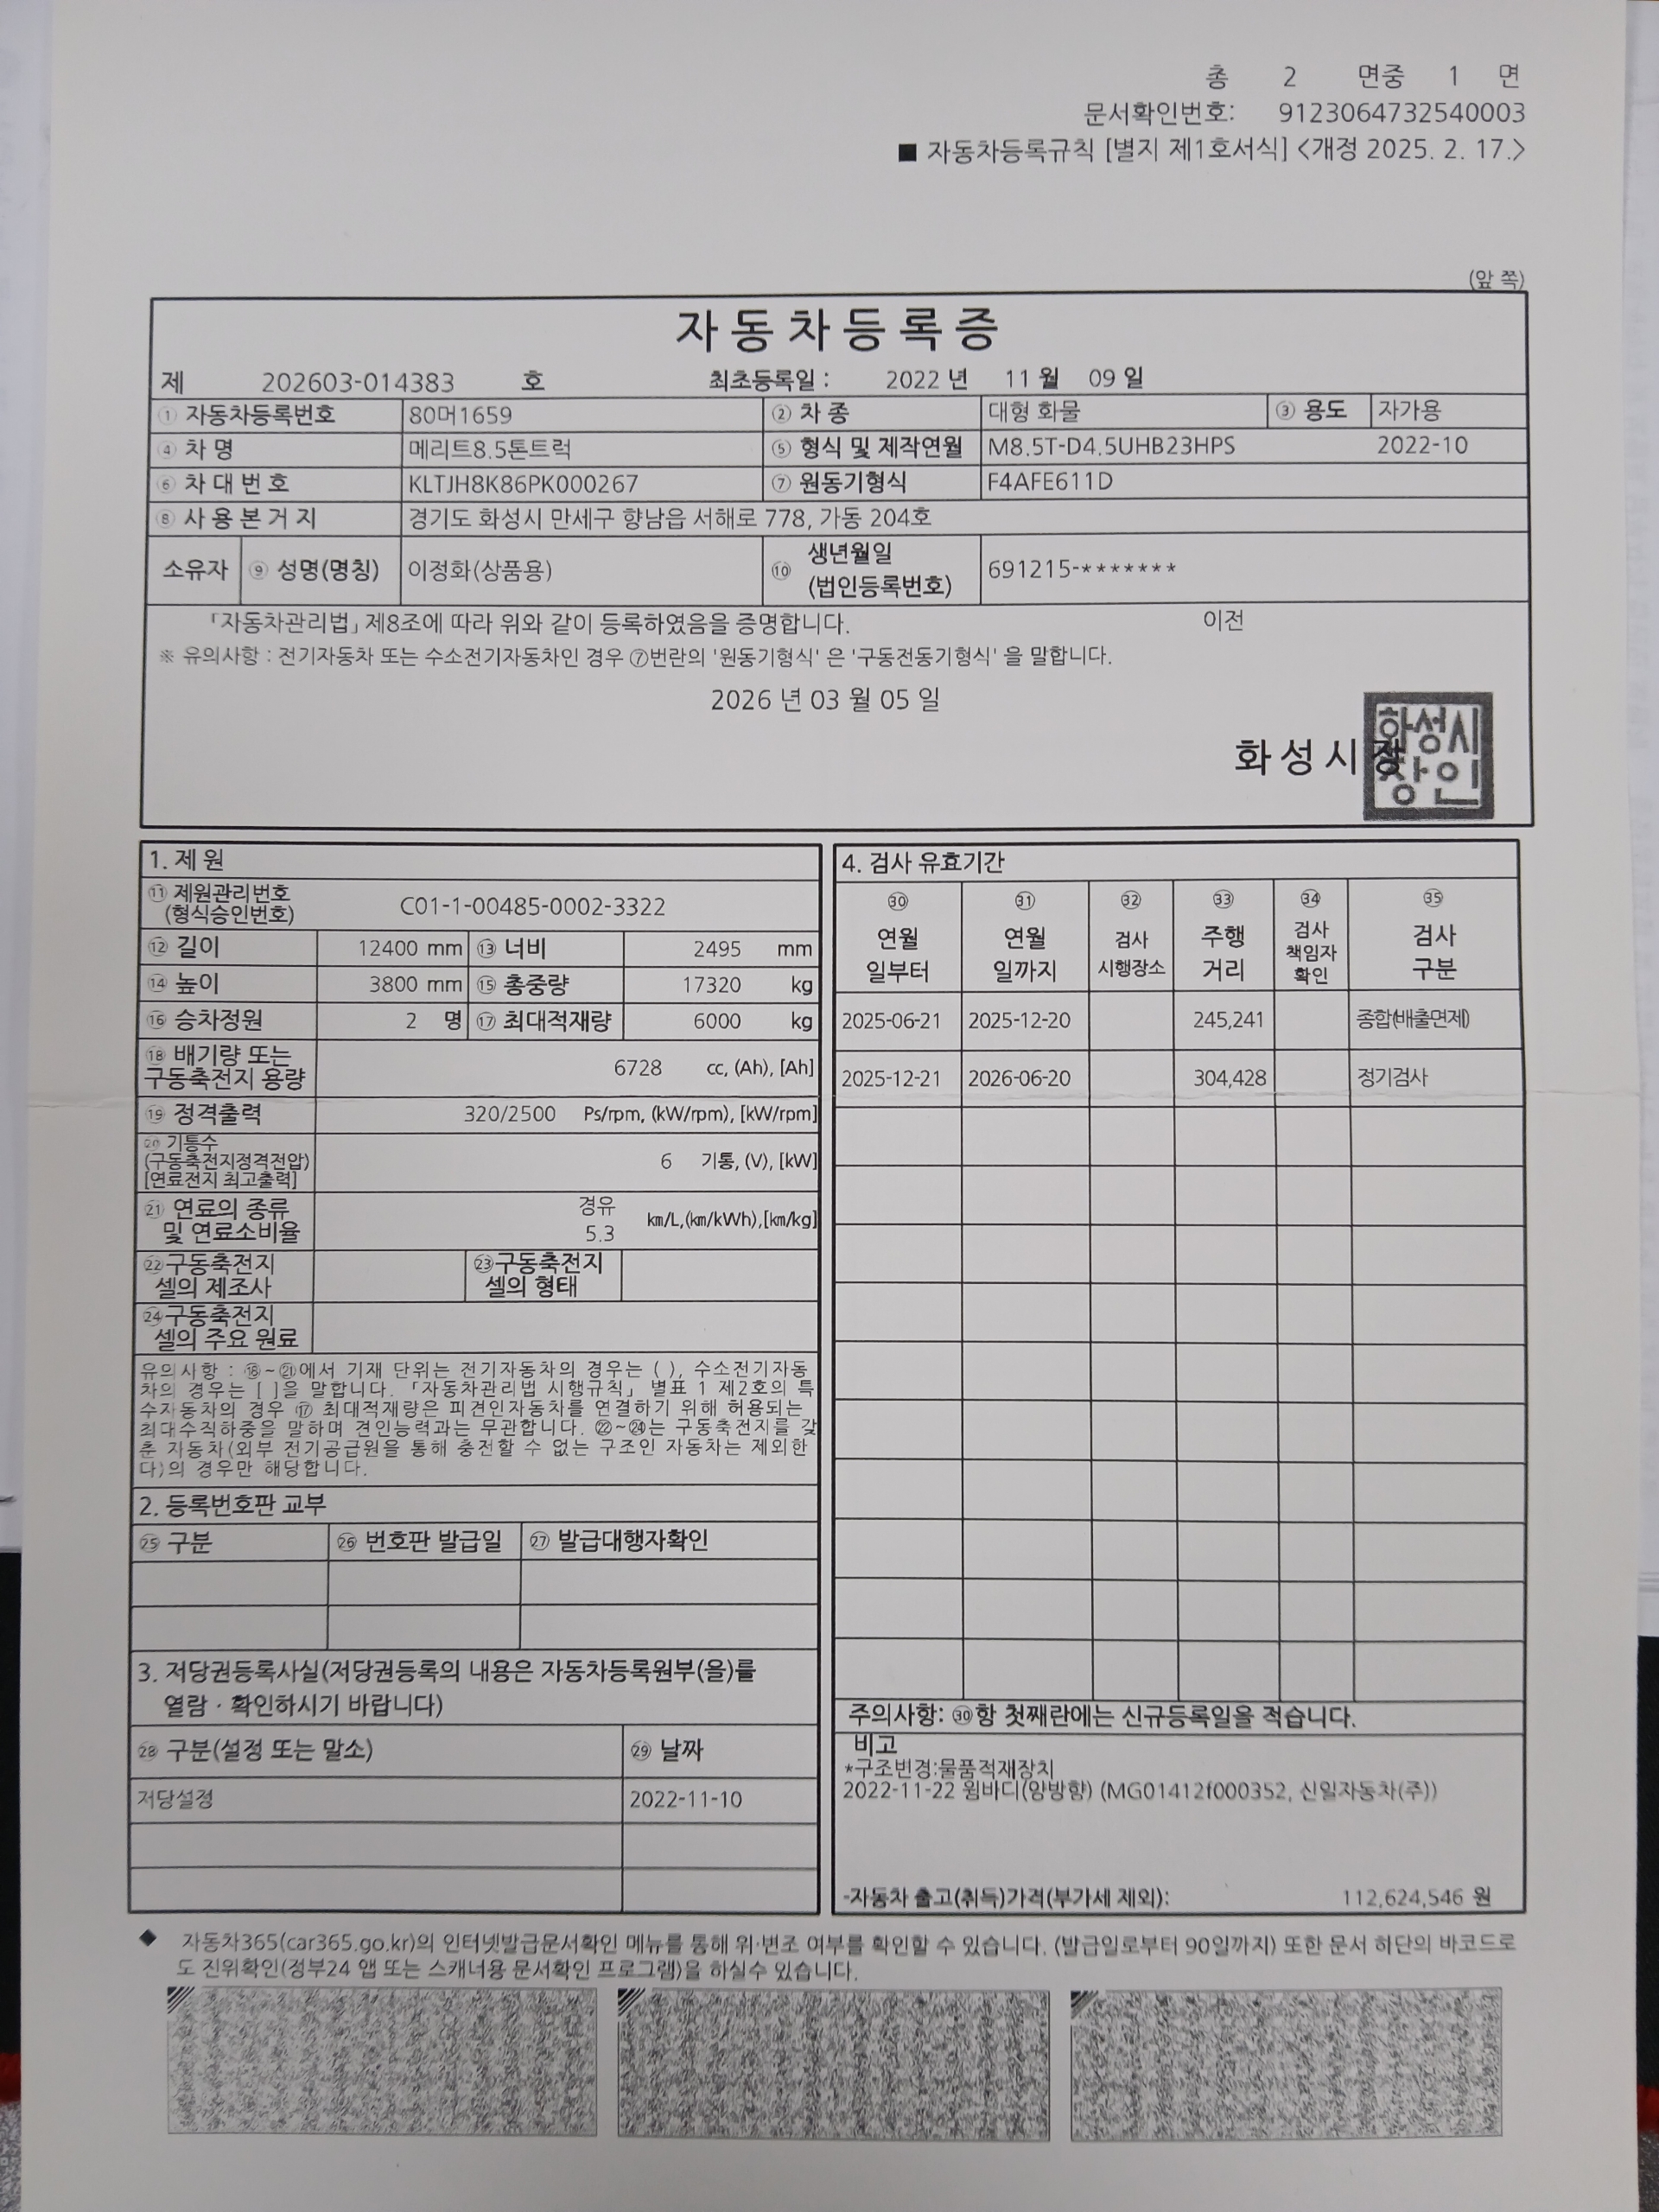 총 2 면중 1 면
문서확인번호: 9123064732540003
■ 자동차등록규칙 [별지 제1호서식] <개정 2025. 2. 17.>
(앞 쪽)
자동차등록증
제 202603-014383 호 최초등록일 : 2022 년 11 월 09 일
① 자동차등록번호 80머1659 ② 차 종 대형 화물 ③ 용도 자가용
④ 차 명 메리트8.5톤트럭 ⑤ 형식 및 제작연월 M8.5T-D4.5UHB23HPS 2022-10
⑥ 차 대 번 호 KLTJH8K86PK000267 ⑦ 원동기형식 F4AFE611D
⑧ 사 용 본 거 지 경기도 화성시 만세구 향남읍 서해로 778, 가동 204호
소유자 ⑨ 성명(명칭) 이정화(상품용) ⑩ 생년월일
(법인등록번호) 691215-*******
「자동차관리법」제8조에 따라 위와 같이 등록하였음을 증명합니다. 이전
※ 유의사항 : 전기자동차 또는 수소전기자동차인 경우 ⑦번란의 '원동기형식' 은 '구동전동기형식' 을 말합니다.
2026 년 03 월 05 일
화성시장
화성시
장인
1. 제 원
⑪ 제원관리번호
(형식승인번호) C01-1-00485-0002-3322
⑫ 길이 12400 mm ⑬ 너비 2495 mm
⑭ 높이 3800 mm ⑮ 총중량 17320 kg
⑯ 승차정원 2 명 ⑰ 최대적재량 6000 kg
⑱ 배기량 또는
구동축전지 용량 6728 cc, (Ah), [Ah]
⑲ 정격출력 320/2500 Ps/rpm, (kW/rpm), [kW/rpm]
⑳ 기통수
(구동축전지정격전압)
[연료전지 최고출력] 6 기통, (V), [kW]
㉑ 연료의 종류
및 연료소비율 경유
5.3 km/L,(km/kWh),[km/kg]
㉒구동축전지
셀의 제조사 ㉓구동축전지
셀의 형태
㉔구동축전지
셀의 주요 원료
유의사항 : ⑱~㉑에서 기재 단위는 전기자동차의 경우는 ( ), 수소전기자동
차의 경우는 [ ]을 말합니다. 「자동차관리법 시행규칙」 별표 1 제2호의 특
수자동차의 경우 ⑰ 최대적재량은 피견인자동차를 연결하기 위해 허용되는
최대수직하중을 말하며 견인능력과는 무관합니다. ㉒~㉔는 구동축전지를 갖
춘 자동차(외부 전기공급원을 통해 충전할 수 없는 구조인 자동차는 제외한
다)의 경우만 해당합니다.
2. 등록번호판 교부
㉕ 구분 ㉖ 번호판 발급일 ㉗ 발급대행자확인
3. 저당권등록사실(저당권등록의 내용은 자동차등록원부(을)를
열람ㆍ확인하시기 바랍니다)
㉘ 구분(설정 또는 말소) ㉙ 날짜
저당설정 2022-11-10
4. 검사 유효기간
㉚ 연월
일부터
㉛ 연월
일까지
㉜ 검사
시행장소
㉝ 주행
거리
㉞ 검사
책임자
확인
㉟ 검사
구분
2025-06-21 2025-12-20 245,241 종합(배출면제)
2025-12-21 2026-06-20 304,428 정기검사
주의사항: ㉚항 첫째란에는 신규등록일을 적습니다.
비고
*구조변경:물품적재장치
2022-11-22 윙바디(양방향) (MG01412f000352, 신일자동차(주))
-자동차 출고(취득)가격(부가세 제외): 112,624,546 원
◆ 자동차365(car365.go.kr)의 인터넷발급문서확인 메뉴를 통해 위·변조 여부를 확인할 수 있습니다. (발급일로부터 90일까지) 또한 문서 하단의 바코드로
도 진위확인(정부24 앱 또는 스캐너용 문서확인 프로그램)을 하실수 있습니다.